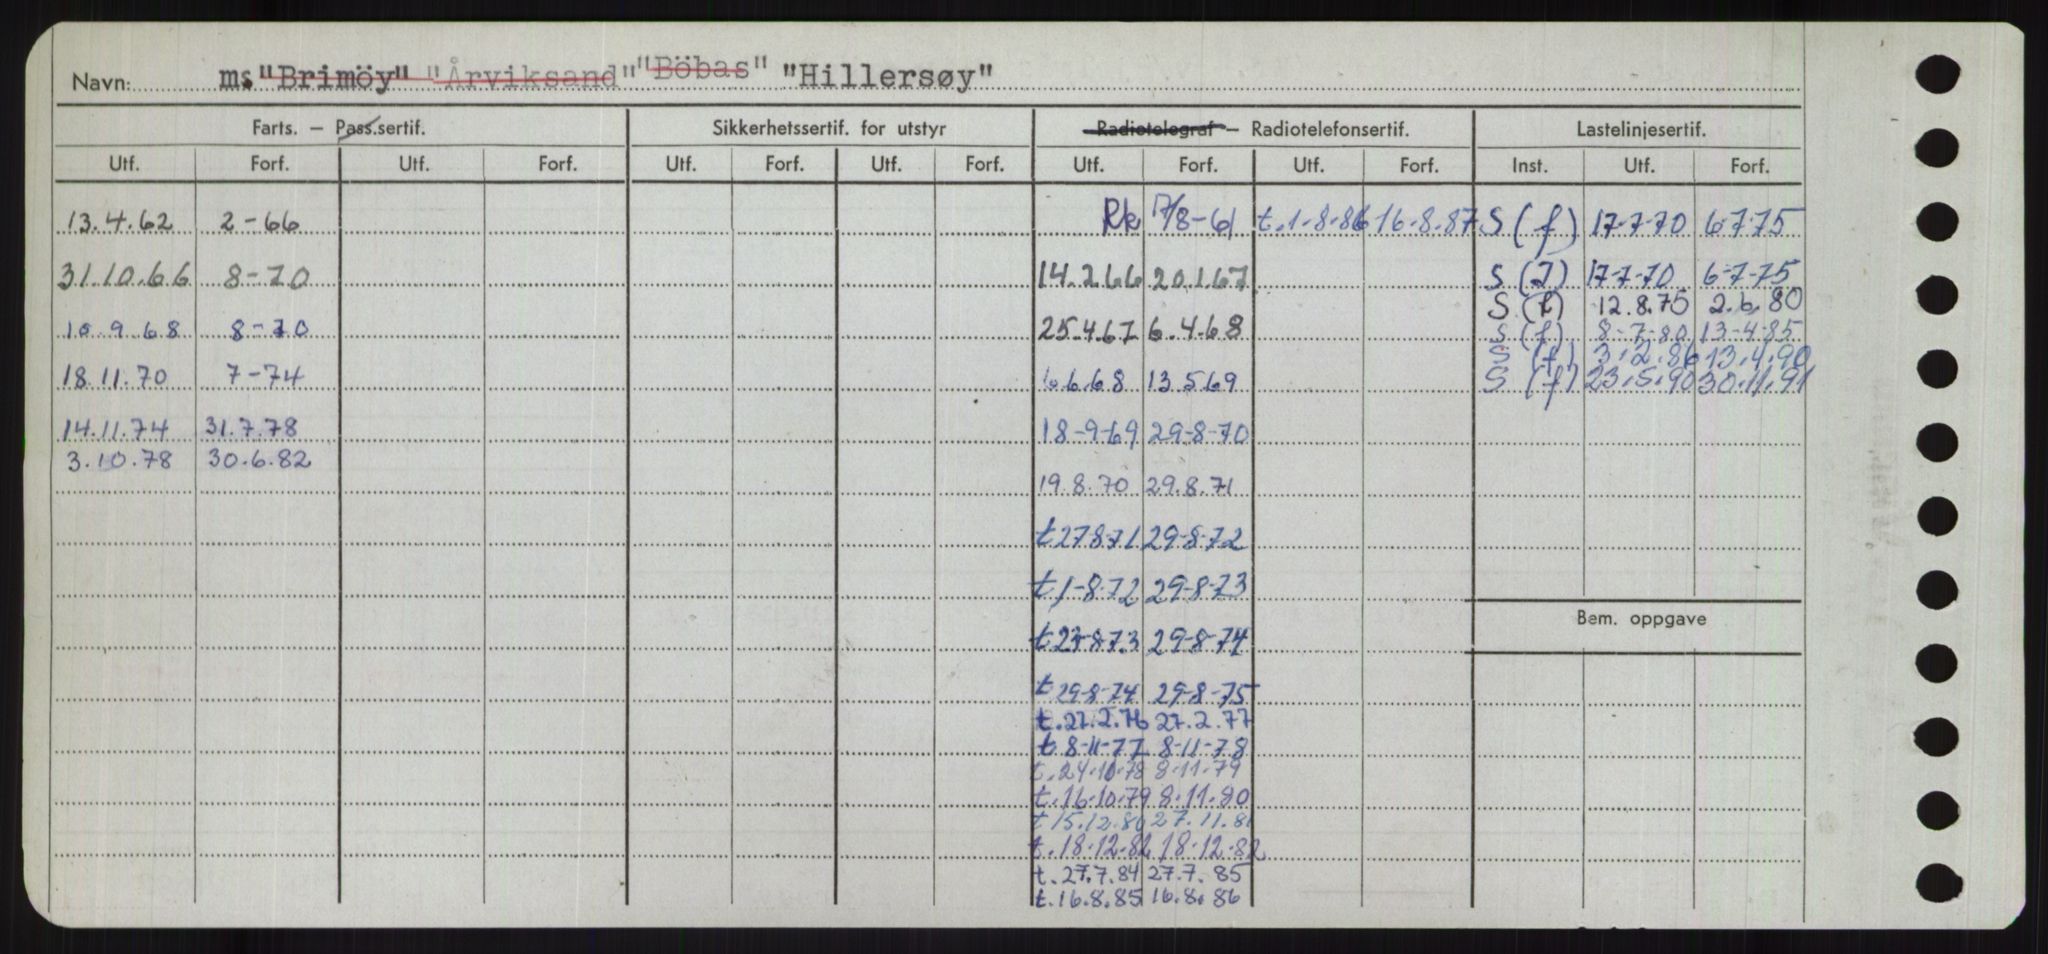 Navn: ms "Brimöy" "Årviksand" "Böbas" "Hillersøy"
Farts. – Pass.sertif. Sikkerhetssertif. for utstyr Radiotelegraf – Radiotelefonsertif. Lastelinjesertif.
Utf. Forf. Utf. Forf. Utf. Forf. Utf. Forf. Utf. Forf. Utf. Forf. Inst. Utf. Forf.
13.4.62 2-66 Rk 17/8-61 t.1-8-86 16.8.87 S (f) 17-7-70 6-7-75
31.10.66 8-70 14.2.66 20.1.67 S (f) 17-7-70 6-7-75
S (f) 12.8.75 2.6.80
10.9.68 8-70 25.4.67 6.4.68 S (f) 8-7-80 13-4-85
S (f) 3.2.86 13.4.90
18.11.70 7-74 6.6.68 13.5.69 S (f) 23.5.90 30.11.91
14.11.74 31.7.78 18-9-69 29-8-70
3.10.78 30.6.82
19.8.70 29.8.71
t 27.8.71 29-8-72
t 1-8-72 29-8-73
t 23-8-73 29-8-74
Bem. oppgave
t 29-8-74 29-8-75
t.27.2.76 27.2.77
t 8-11-77 8-11-78
t.24.10.78 8.11.79
t.16.10.79 8.11.80
t 15.12.80 27.11.81
t.18.12.82 18.12.82
t.27.7.84 27.7.85
t.16.8.85 16.8.86